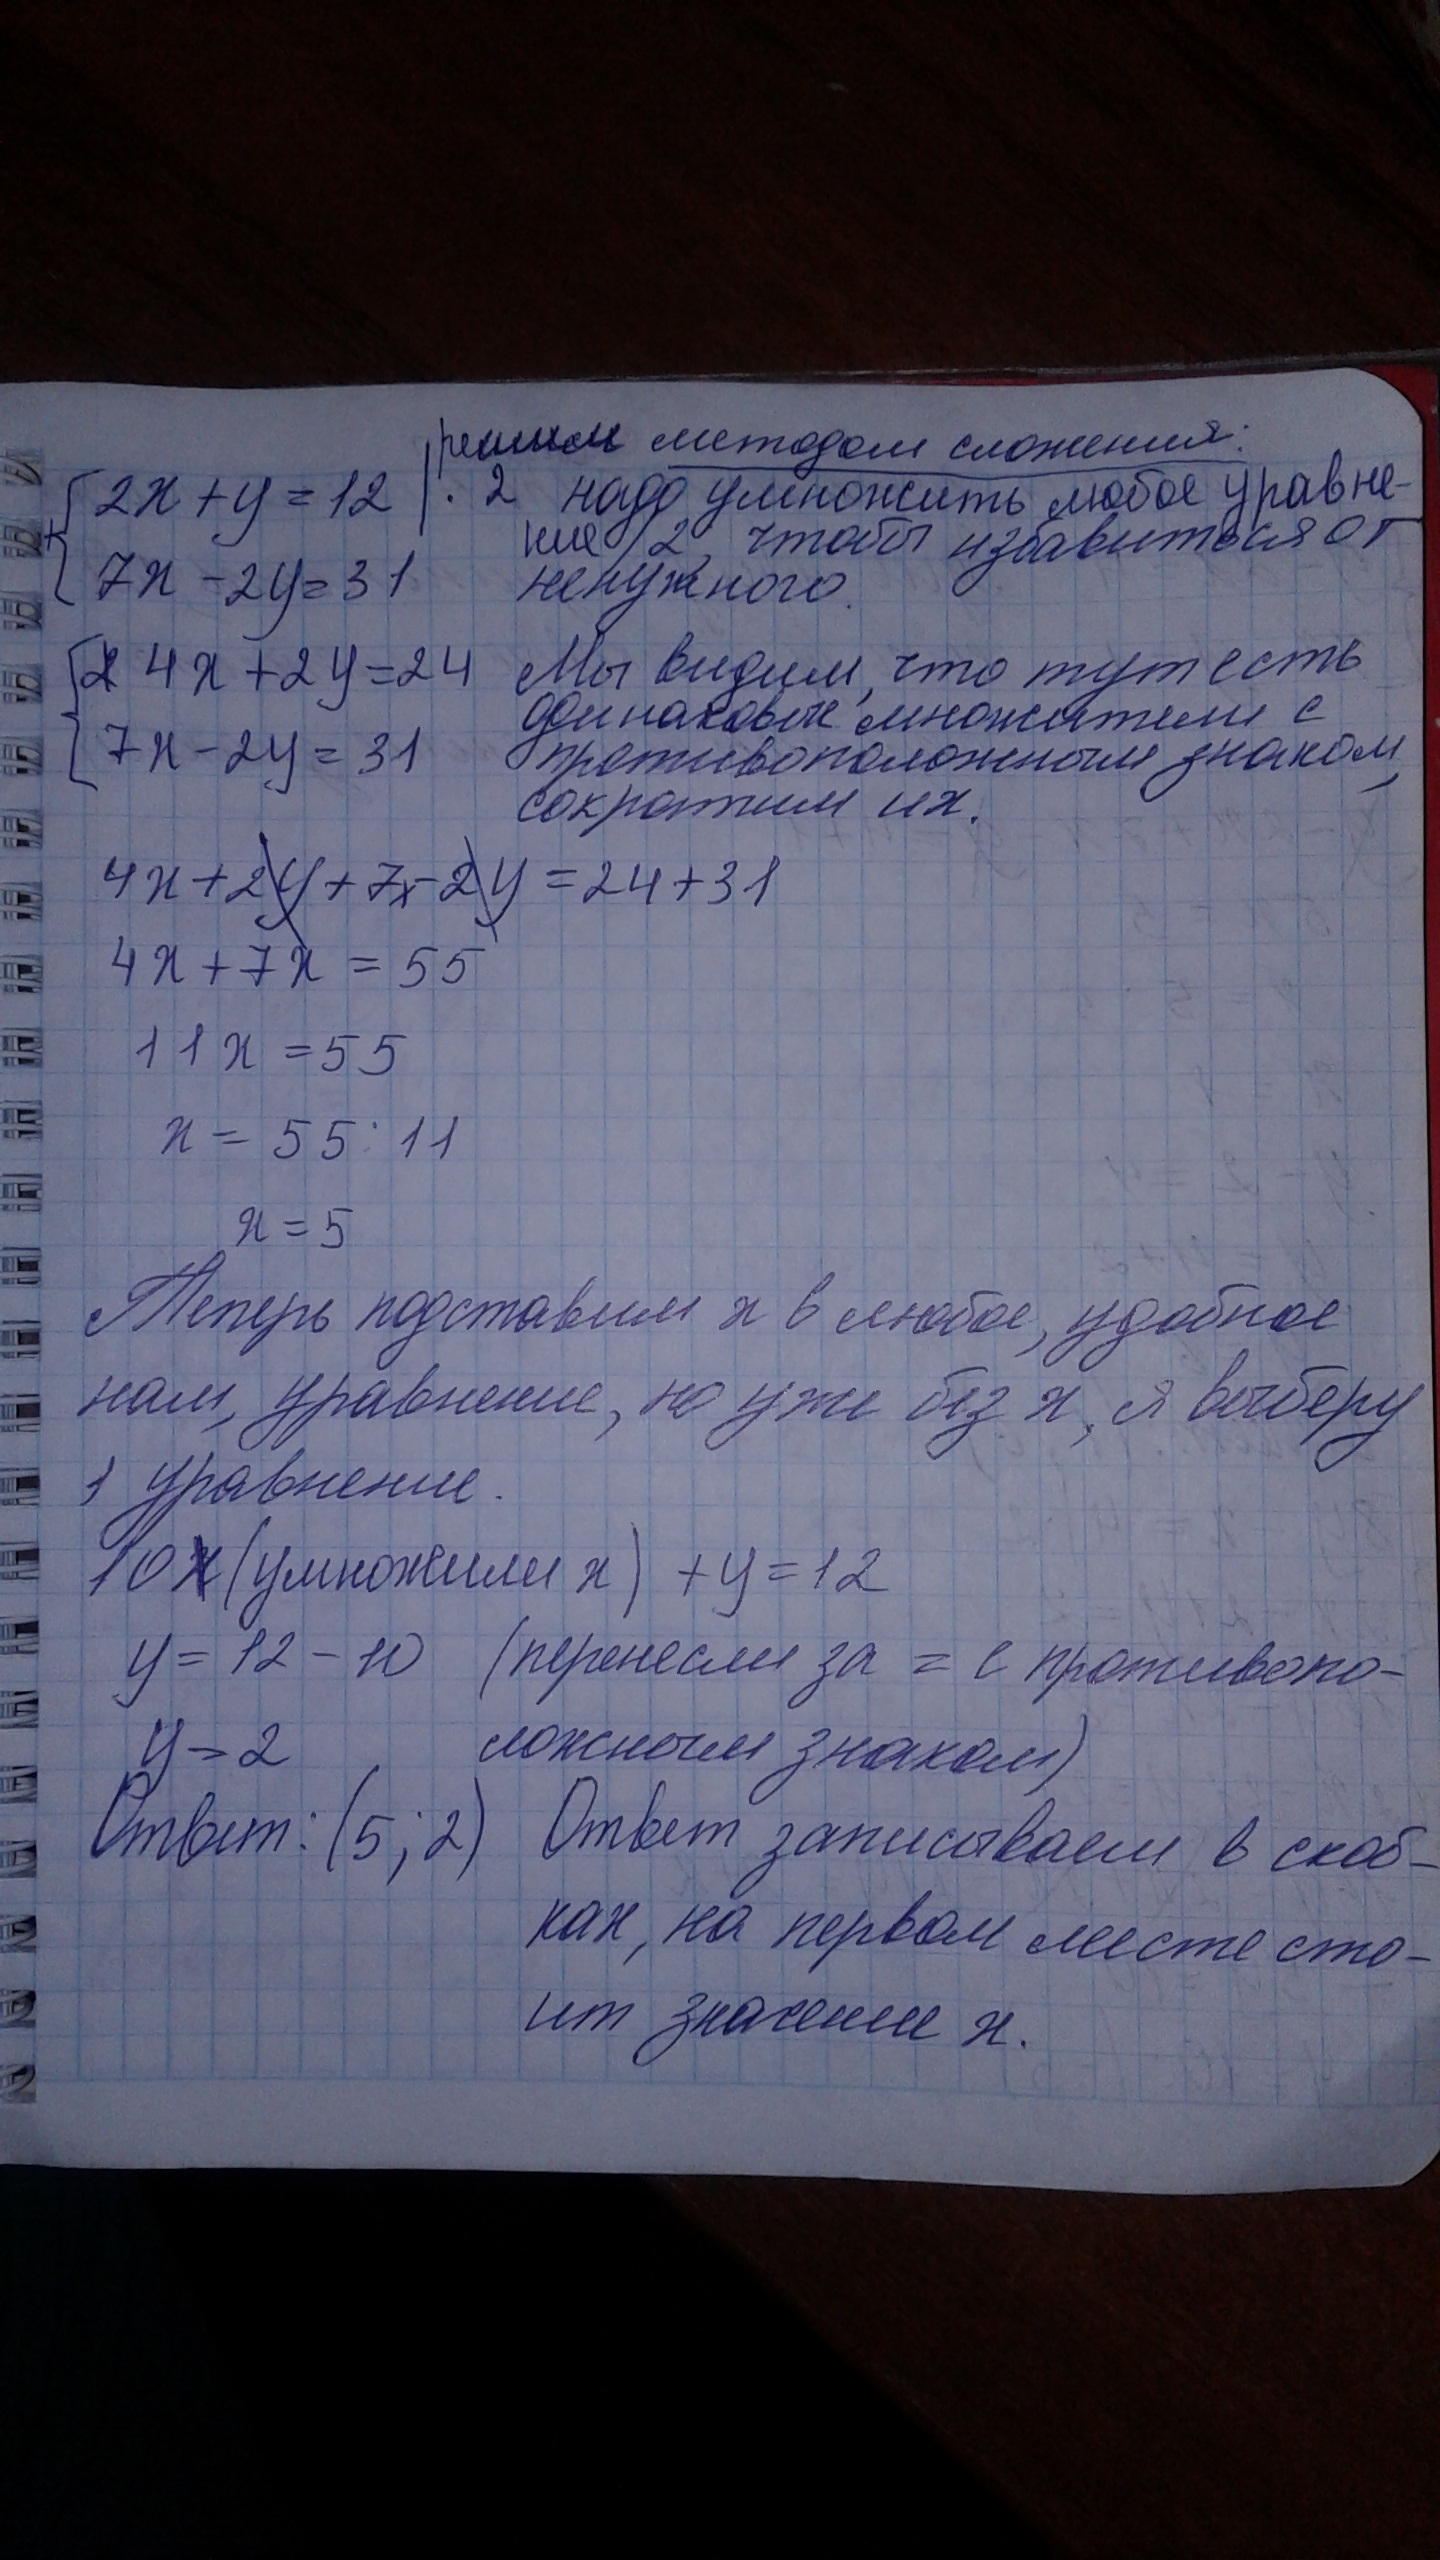 решим методом сложения:
{2x + y = 12 | · 2 надо умножить любое уравне-
ние 2, чтобы избавиться от
7x - 2y = 31 ненужного.
{ 4x + 2y = 24 Мы видим, что тут есть
одинаковые множители с
7x - 2y = 31 противоположным знаком,
сократим их.
4x + 2y + 7x - 2y = 24 + 31
4x + 7x = 55
11x = 55
x = 55 : 11
x = 5
Теперь подставим x в любое, удобное
нам, уравнение, но уже без x, я выберу
1 уравнение.
10 (умножили x) + y = 12
y = 12 - 10 (перенесли за = с противопо-
y = 2 ложным знаком)
Ответ: (5; 2) Ответ записываем в скоб-
ках, на первом месте сто-
ит значение x.